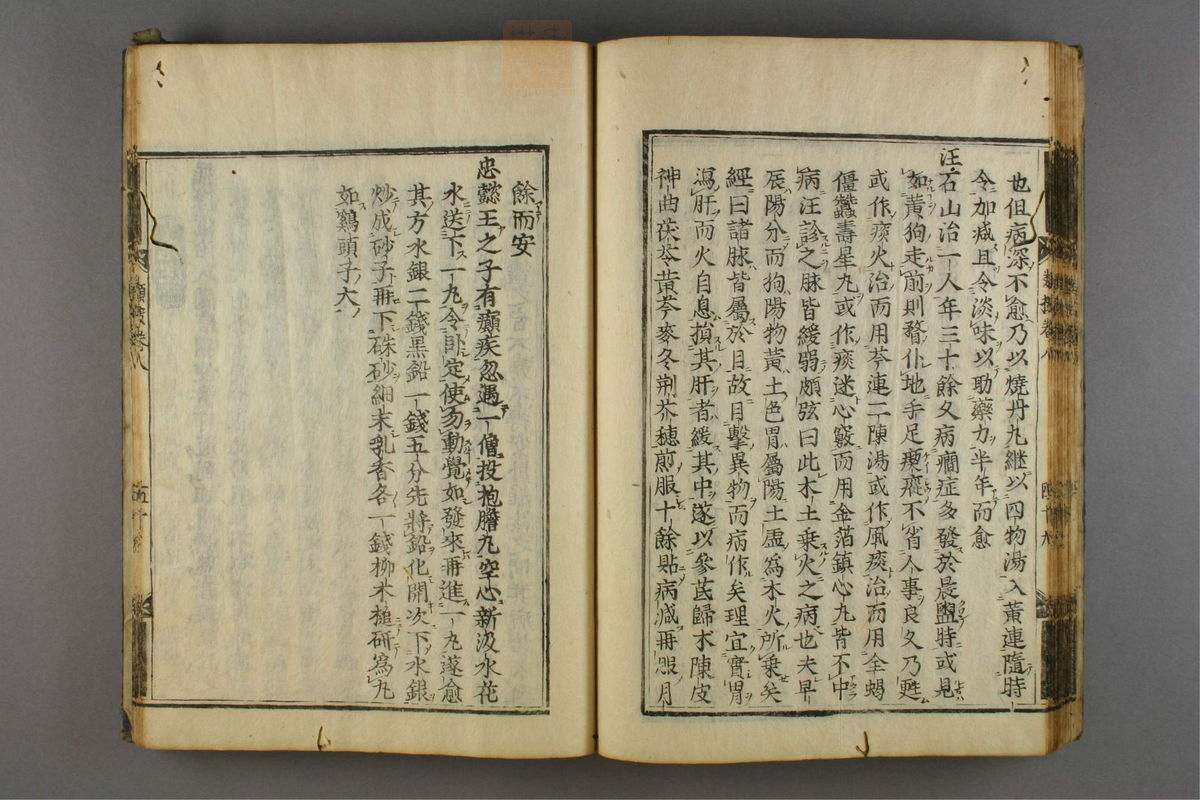 也但病深不愈乃以燒丹丸継以四物湯入黃連隨時
令加减且令淡味以助藥力半年而愈
汪石山治一人年三十餘久病癎症多發於晨盥時或見
如黃狗走前則瞀仆地手足瘈瘲不省人事良久乃甦
或作痰火治而用芩連二陳湯或作風痰治而用全蝎
僵蠶壽星丸或作痰迷心竅而用金箔鎮心丸皆不中
病汪診之脉皆緩弱頗弦曰此木土乗火之病也夫早
辰陽分而狗陽物黃土色胃屬陽土虛為木火所乗矣
經曰諸脉皆屬於目故目擊異物而病作矣理宜實胃
瀉肝而火自息損其肝者緩其中遂以參芪歸术陳皮
神曲茯苓黃芩麥冬荊芥穗煎服十餘貼病减再服月
餘而安
忠懿王之子有癲疾忽遇一僧投抱膽丸空心新汲水花
水送下一丸令卧定使勿動覺如發來再進一丸遂愈
其方水銀二錢黑鉛一錢五分先將鉛化開次下水銀
炒成砂子再下硃砂細末乳香各一錢柳木槌研為丸
如鷄頭子大
類按卷八